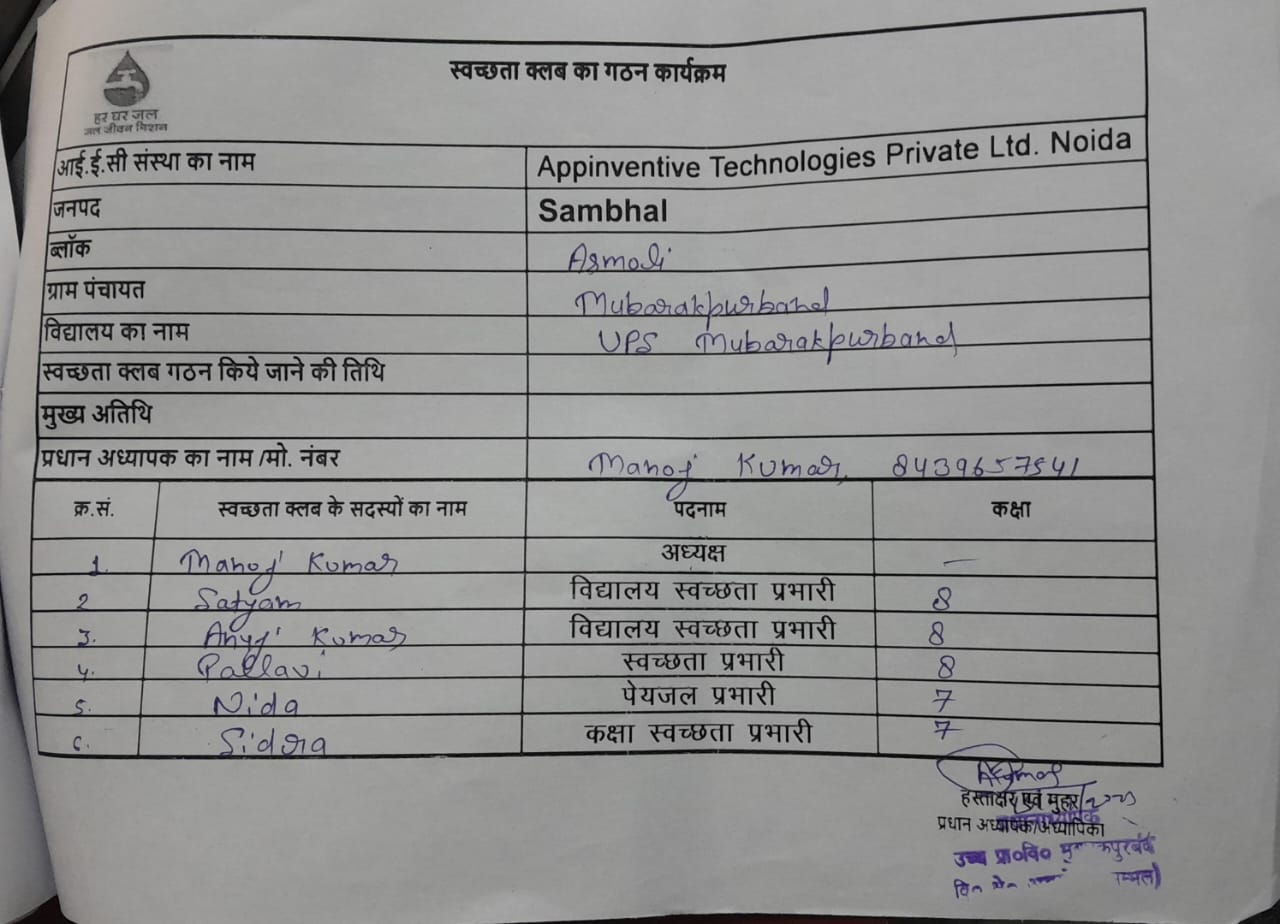 स्वच्छता क्लब का गठन कार्यक्रम
हर घर जल
जल जीवन मिशन
आई.ई.सी संस्था का नाम Appinventive Technologies Private Ltd. Noida
जनपद Sambhal
ब्लॉक Asmoli
ग्राम पंचायत Mubarakpurband
विद्यालय का नाम UPS Mubarakpurband
स्वच्छता क्लब गठन किये जाने की तिथि
मुख्य अतिथि
प्रधान अध्यापक का नाम /मो. नंबर Manoj Kumar, 8439657541
क्र.सं. स्वच्छता क्लब के सदस्यों का नाम पदनाम कक्षा
1. Manoj Kumar अध्यक्ष —
2 Satyam विद्यालय स्वच्छता प्रभारी 8
3. Anuj Kumar विद्यालय स्वच्छता प्रभारी 8
4. Pallavi स्वच्छता प्रभारी 8
5. Nida पेयजल प्रभारी 7
6. Sidra कक्षा स्वच्छता प्रभारी 7
हस्ताक्षर एवं मुहर
प्रधानाध्यापक
प्रधान अध्यापक/अध्यापिका
उच्च प्रा०वि०